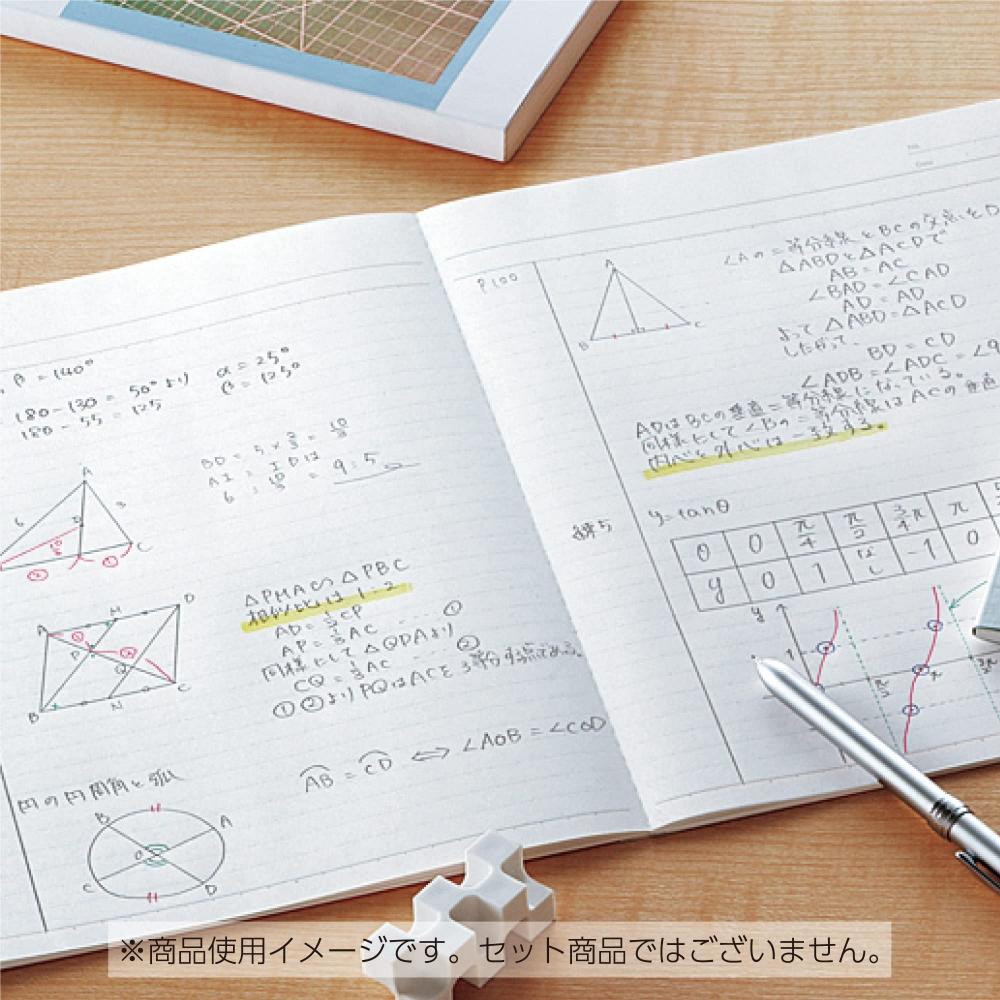 β = 140°
180-130 = 50° より α = 25°
180 - 55 = 125 β = 125°
BD = 5 × 2/3 = 10/3
AI : IDは
6 : 10/3 = 9 : 5
A
6
3
B
10/3
C
② ①
△PMA∽△PBC
相似比は 1:2
AP = 1/2 CP
AP = 1/3 AC ... ①
同様にして △QDAより
CQ = 1/3 AC ... ②
①②よりPQはACを3等分する点である。
A M D
① P ② Q
B N C
円の円周角と弧
AB = CD ⟺ ∠AOB = ∠COD
B A
O
C D
No.
Date
P100
A
B C
∠Aの二等分線とBCの交点をD
△ABDと△ACDで
AB = AC
∠BAD = ∠CAD
AD = AD
よって △ABD = △ACD
したがって、
BD = CD
∠ADB = ∠ADC = ∠9
ADはBCの垂直二等分線になっている。
同様にして∠Bの二等分線はACの垂直
内心と外心は一致する。
練5
y = tanθ
θ 0 π/4 π/2 3/4π π
y 0 1 なし -1 0
y
1
π/2 π 3π/2
※商品使用イメージです。セット商品ではございません。